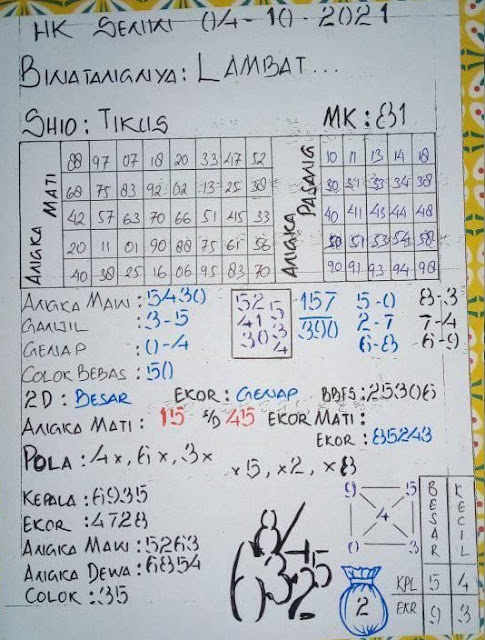 HK SENIN 04-10-2021
BINATANGNYA: LAMBAT...
SHIO: TIKUS MK: 81
ANGKA MATI
88 97 07 18 20 33 47 52
68 75 83 92 02 13 25 38
42 57 63 70 66 51 45 33
20 11 01 90 88 75 61 56
40 38 25 16 06 95 83 70
ANGKA PASANG
10 11 13 14 18
30 31 33 34 38
40 41 43 44 48
50 51 53 54 58
90 91 93 94 98
ANGKA MAIN: 5430
GANJIL: 3-5
GENAP: 0-4
COLOK BEBAS: 50
525
415
303
4
157
390
5-0 8-3
2-7 7-4
6-8 6-9
2D: BESAR EKOR: GENAP BBFS: 25306
ANGKA MATI: 15 S/D 45 EKOR MATI:
EKOR: 85243
POLA: 4x, 6x, 3x x5, x2, x8
KEPALA: 6935
EKOR: 4728
ANGKA MAIN: 5263
ANGKA DEWA: 6854
COLOK: 35
9 5
4
0 3
2
BESAR KECIL
KPL 5 4
EKR 9 3